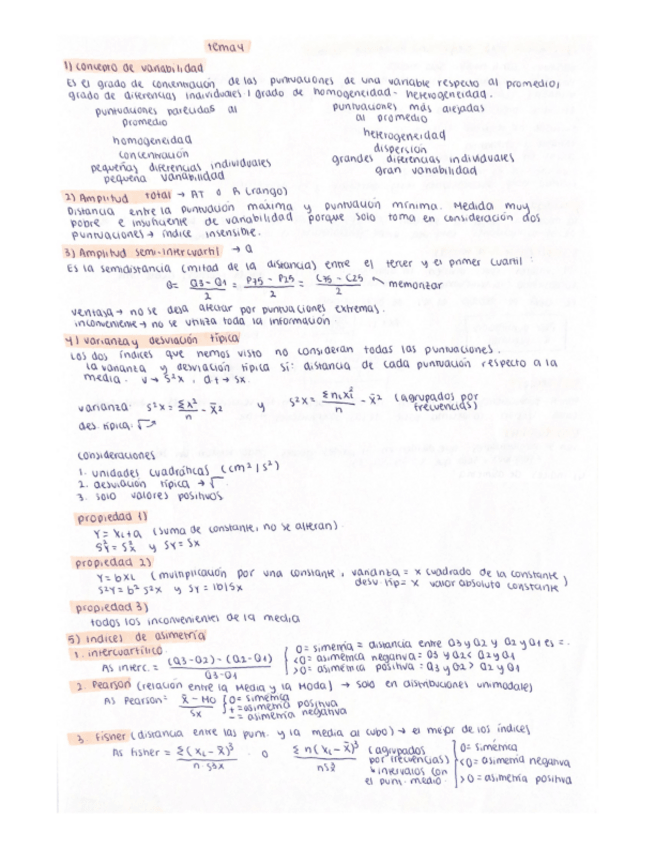 tema 4
1) concepto de variabilidad
Es el grado de concentración de las puntuaciones de una variable respecto al promedio,
grado de diferencias individuales / grado de homogeneidad - heterogeneidad.
puntuaciones parecidas al promedio
homogeneidad
concentración
pequeñas diferencias individuales
pequeña variabilidad
puntuaciones más alejadas al promedio
heterogeneidad
dispersión
grandes diferencias individuales
gran variabilidad
2) Amplitud total → AT o A (rango)
Distancia entre la puntuación máxima y puntuación mínima. Medida muy
pobre e insuficiente de variabilidad porque solo toma en consideración dos
puntuaciones → índice insensible.
3) Amplitud semi-intercuartil → Q
Es la semidistancia (mitad de la distancia) entre el tercer y el primer cuartil:
Q= Q3-Q1/2 = P75-P25/2 = C75-C25/2 memorizar
ventaja → no se deja afectar por puntuaciones extremas.
inconveniente → no se utiliza toda la información.
4) varianza y desviación típica
Los dos índices que hemos visto no consideran todas las puntuaciones.
La varianza y desviación típica sí: distancia de cada puntuación respecto a la
media. v → s²x, dt → sx.
varianza: s²x = Σx²/n - x̄² y s²x = Σnixi²/n - x̄² (agrupados por frecuencias)
des. típica: √
consideraciones
1. unidades cuadráticas (cm²/s²)
2. desviación típica → √
3. solo valores positivos
propiedad 1)
Y= xi+a (suma de constante, no se alteran).
s²Y = s²x y sY = sx
propiedad 2)
Y= bxi (multiplicación por una constante, varianza = x cuadrado de la constante
desv. tip= x valor absoluto constante)
s²Y= b² s²x y sY = |b|sx
propiedad 3)
todos los inconvenientes de la media
5) Índices de asimetría
1. intercuartílico.
As interc. = (Q3-Q2)-(Q2-Q1)/Q3-Q1
0= simetría = distancia entre Q3 y Q2 y Q2 y Q1 es =.
<0= asimétrica negativa= Q3 y Q2 < Q2 y Q1
>0= asimétrica positiva = Q3 y Q2 > Q2 y Q1
2. Pearson (relación entre la Media y la Moda) → solo en distribuciones unimodales)
As Pearson= x̄ - Mo/sx
0= simétrica
+= asimétrica positiva
-= asimétrica negativa
3. Fisher (distancia entre las punt. y la media al cubo) → el mejor de los índices
As fisher = Σ(xi - x̄)³/n · s3x o Σn(xi - x̄)³/ns³x (agrupados
por frecuencias)
intervalos con
el punt. medio.
0= simétrica
<0= asimetría negativa
>0= asimetría positiva